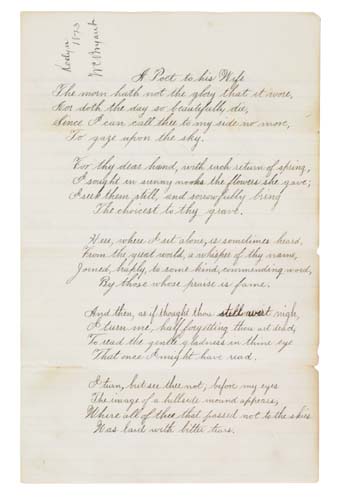 Roslyn
1873
W C Bryant
A Poet to his Wife
The morn hath not the glory that it wore,
Nor doth the day so beautifully die,
Since I can call thee to my side no more,
To gaze upon the sky.
For thy dear hand, with each return of spring,
I sought in sunny nooks the flowers she gave;
I seek them still, and sorrowfully bring
The choicest to thy grave.
Here, where I sit alone, is sometimes heard,
From the great world, a whisper of thy name,
Joined, haply, to some kind, commending word,
By those whose praise is fame.
And then, as if I thought thou still wert nigh,
I turn me, half forgetting thou art dead,
To read the gentle gladness in thine eye
That once I might have read.
I turn, but see thee not; before my eyes
The image of a hillside mound appears,
Where all of thee that passed not to the skies
Was laid with bitter tears.